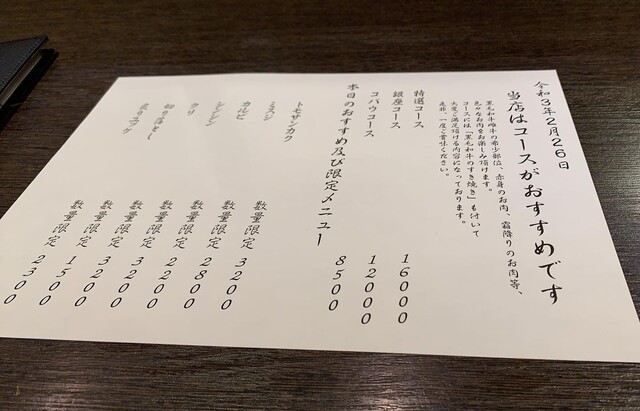 令和3年2月26日
当店はコースがおすすめです
黒毛和牛雌牛の希少部位、赤身のお肉、霜降りのお肉等、
色々なお肉をお楽しみ頂けます。
コースには「黒毛和牛のすき焼き」も付いて
大変ご満足頂ける内容になっております。
是非、一度ご賞味ください。
特選コース 16000
銀座コース 12000
コバウコース 8500
本日のおすすめ及び限定メニュー
トモサンカク 数量限定 3200
ミスジ 数量限定 2800
カルビ 数量限定 2200
シンシン 数量限定 3200
クリ 数量限定 3200
切り落とし 数量限定 1500
炙りユッケ 数量限定 2300